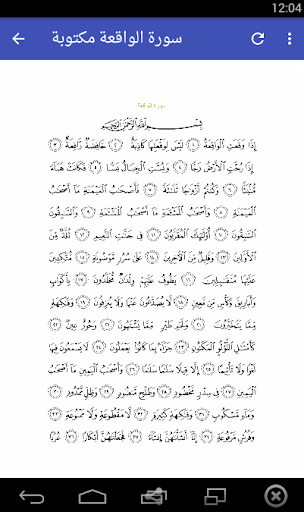 12:04
سورة الواقعة مكتوبة
سورة الواقعة
بِسْمِ اللَّهِ الرَّحْمَٰنِ الرَّحِيمِ
إِذَا وَقَعَتِ الْوَاقِعَةُ ١ لَيْسَ لِوَقْعَتِهَا كَاذِبَةٌ ٢ خَافِضَةٌ رَّافِعَةٌ ٣
إِذَا رُجَّتِ الْأَرْضُ رَجًّا ٤ وَبُسَّتِ الْجِبَالُ بَسًّا ٥ فَكَانَتْ هَبَاءً
مُّنبَثًّا ٦ وَكُنتُمْ أَزْوَاجًا ثَلَاثَةً ٧ فَأَصْحَابُ الْمَيْمَنَةِ مَا أَصْحَابُ
الْمَيْمَنَةِ ٨ وَأَصْحَابُ الْمَشْأَمَةِ مَا أَصْحَابُ الْمَشْأَمَةِ ٩ وَالسَّابِقُونَ
السَّابِقُونَ ١٠ أُولَٰئِكَ الْمُقَرَّبُونَ ١١ فِي جَنَّاتِ النَّعِيمِ ١٢ ثُلَّةٌ مِّنَ
الْأَوَّلِينَ ١٣ وَقَلِيلٌ مِّنَ الْآخِرِينَ ١٤ عَلَىٰ سُرُرٍ مَّوْضُونَةٍ ١٥ مُّتَّكِئِينَ
عَلَيْهَا مُتَقَابِلِينَ ١٦ يَطُوفُ عَلَيْهِمْ وِلْدَانٌ مُّخَلَّدُونَ ١٧ بِأَكْوَابٍ
وَأَبَارِيقَ وَكَأْسٍ مِّن مَّعِينٍ ١٨ لَّا يُصَدَّعُونَ عَنْهَا وَلَا يُنزِفُونَ ١٩ وَفَاكِهَةٍ
مِّمَّا يَتَخَيَّرُونَ ٢٠ وَلَحْمِ طَيْرٍ مِّمَّا يَشْتَهُونَ ٢١ وَحُورٌ عِينٌ ٢٢
كَأَمْثَالِ اللُّؤْلُؤِ الْمَكْنُونِ ٢٣ جَزَاءً بِمَا كَانُوا يَعْمَلُونَ ٢٤ لَا يَسْمَعُونَ فِيهَا
لَغْوًا وَلَا تَأْثِيمًا ٢٥ إِلَّا قِيلًا سَلَامًا سَلَامًا ٢٦ وَأَصْحَابُ الْيَمِينِ مَا أَصْحَابُ
الْيَمِينِ ٢٧ فِي سِدْرٍ مَّخْضُودٍ ٢٨ وَطَلْحٍ مَّنضُودٍ ٢٩ وَظِلٍّ مَّمْدُودٍ ٣٠
وَمَاءٍ مَّسْكُوبٍ ٣١ وَفَاكِهَةٍ كَثِيرَةٍ ٣٢ لَّا مَقْطُوعَةٍ وَلَا مَمْنُوعَةٍ ٣٣
وَفُرُشٍ مَّرْفُوعَةٍ ٣٤ إِنَّا أَنشَأْنَاهُنَّ إِنشَاءً ٣٥ فَجَعَلْنَاهُنَّ أَبْكَارًا ٣٦ عُرُبًا